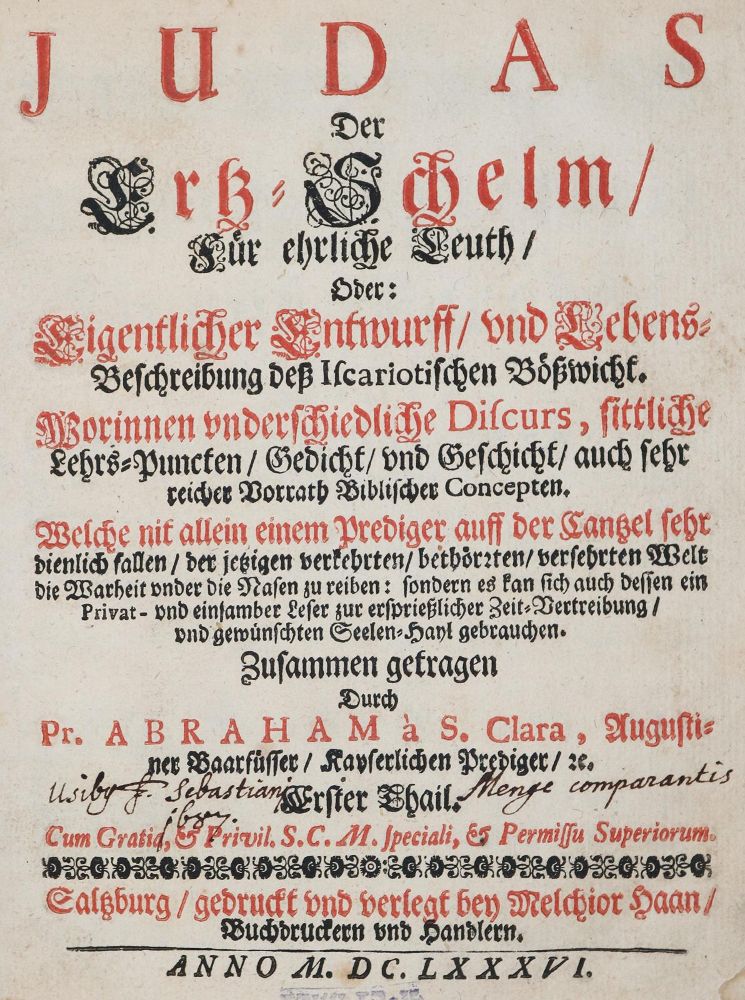 JUDAS
Der
Ertz-Schelm/
Für ehrliche Leuth/
Oder:
Eigentlicher Entwurff/ vnd Lebens-
Beschreibung deß Iscariotischen Bößwicht.
Worinnen vnderschiedliche Discurs, sittliche
Lehrs-Puncten/ Gedicht/ vnd Geschicht/ auch sehr
reicher Vorrath Biblischer Concepten.
Welche nit allein einem Prediger auff der Cantzel sehr
dienlich fallen/ der jetzigen verkehrten/ bethörꝛten/ versehrten Welt
die Warheit vnder die Nasen zu reiben: sondern es kan sich auch dessen ein
Privat- vnd einsamber Leser zur ersprießlicher Zeit-Vertreibung/
vnd gewünschten Seelen-Hayl gebrauchen.
Zusammen getragen
Durch
Pr. ABRAHAM à S. Clara, Augusti-
ner Baarfüsser/ Kayserlichen Prediger/ ꝛc.
Usiby F. Sebastiani Menge comparantis
Erster Thail.
1687.
Cum Gratia, & Privil. S. C. M. speciali, & Permissu Superiorum.
Saltzburg/ gedruckt vnd verlegt bey Melchior Haan/
Buchdruckern vnd Handlern.
ANNO M. DC. LXXXVI.